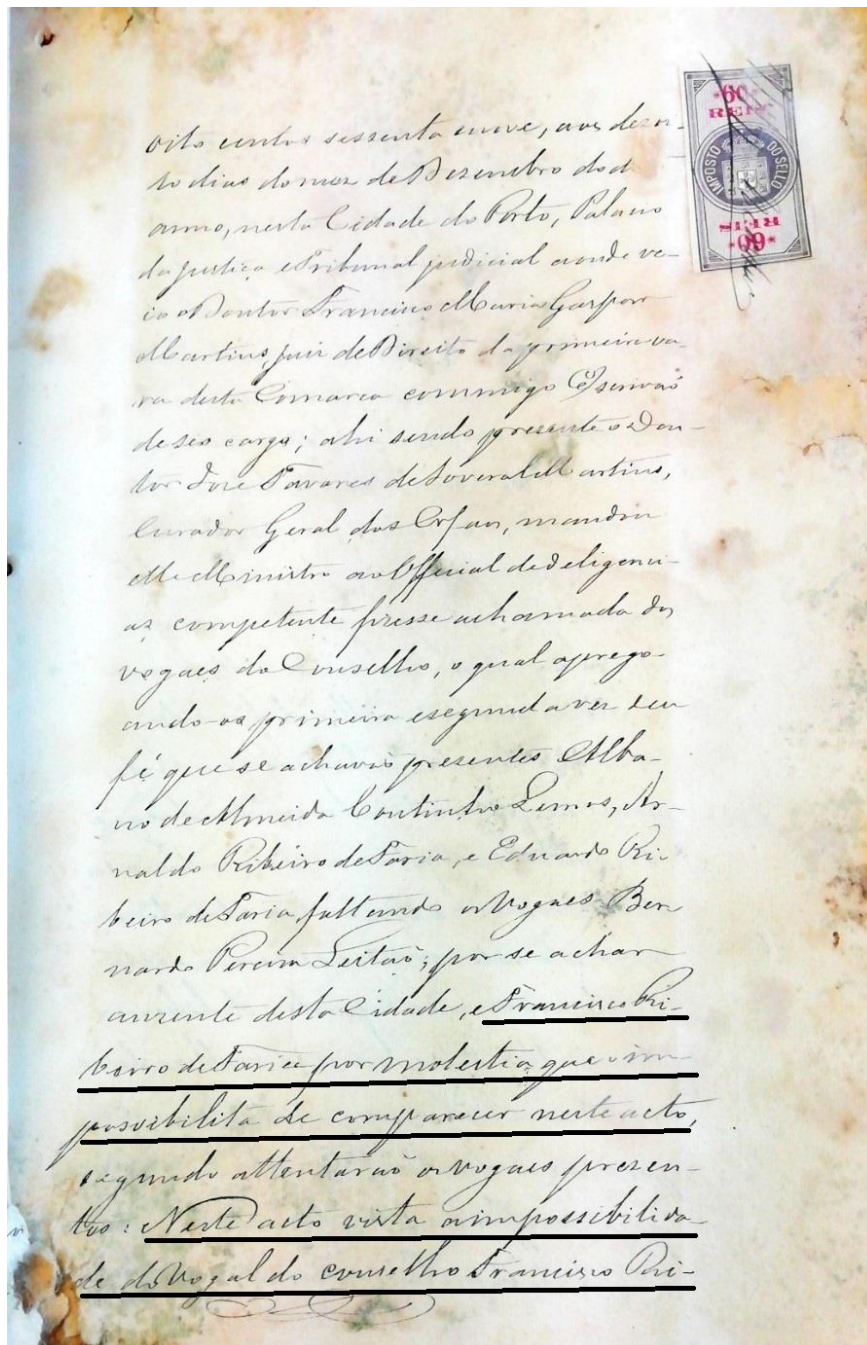 * 60 *
REIS
IMPOSTO DO SELLO
REIS
* 60 *
oito centos sessenta e nove, aos dezoi-
to dias do mez de Dezembro do d
anno, nesta Cidade do Porto, Palacio
da Justiça e Tribunal judicial aonde ve-
io o Doutor Francisco Maria Gaspar
Martins, juiz de Direito da primeira va-
ra desta Comarca commigo Escrivaõ
de seo cargo; ahi sendo presente o Dou-
tor José Tavares de Soveral Martins,
Curador Geral dos Orfaos, mandou
elle Ministro ao Official de deligenci-
as competente fizesse a chamada dos
vogaes do Conselho, o qual aprego-
ando-os primeira e segunda vez deu
fé que se achavaõ presentes Alba-
no de Almeida Coutinho Lemos, Ar-
naldo Ribeiro de Faria, e Eduardo Ri-
beiro de Faria, faltando os Vogaes Ber
nardo Pereira Leitaõ; por se achar
auzente desta Cidade, e Francisco Ri-
beiro de Faria por molestia que o im-
possibilita de comparecer neste acto,
segundo attentaraõ os vogaes presen-
tes: Neste acto vista a impossibilida
de do Vogal do conselho Francisco Ri-